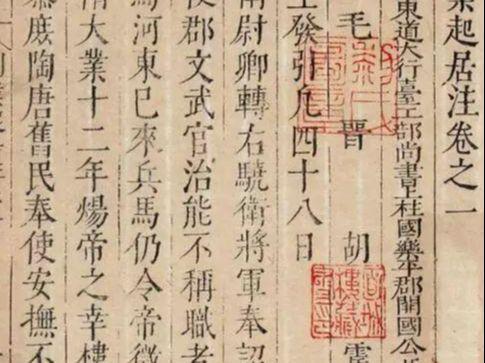 業起居注卷之一
東道大行臺工部尚書上柱國樂平郡開國公
毛晉 胡震
發引凡四十八日
尉卿轉右驍衛將軍奉詔
使郡文武官治能不稱職者
焉河東已來兵馬仍令帝徵
隋大業十二年煬帝之幸樓
庶陶唐舊民奉使安撫不